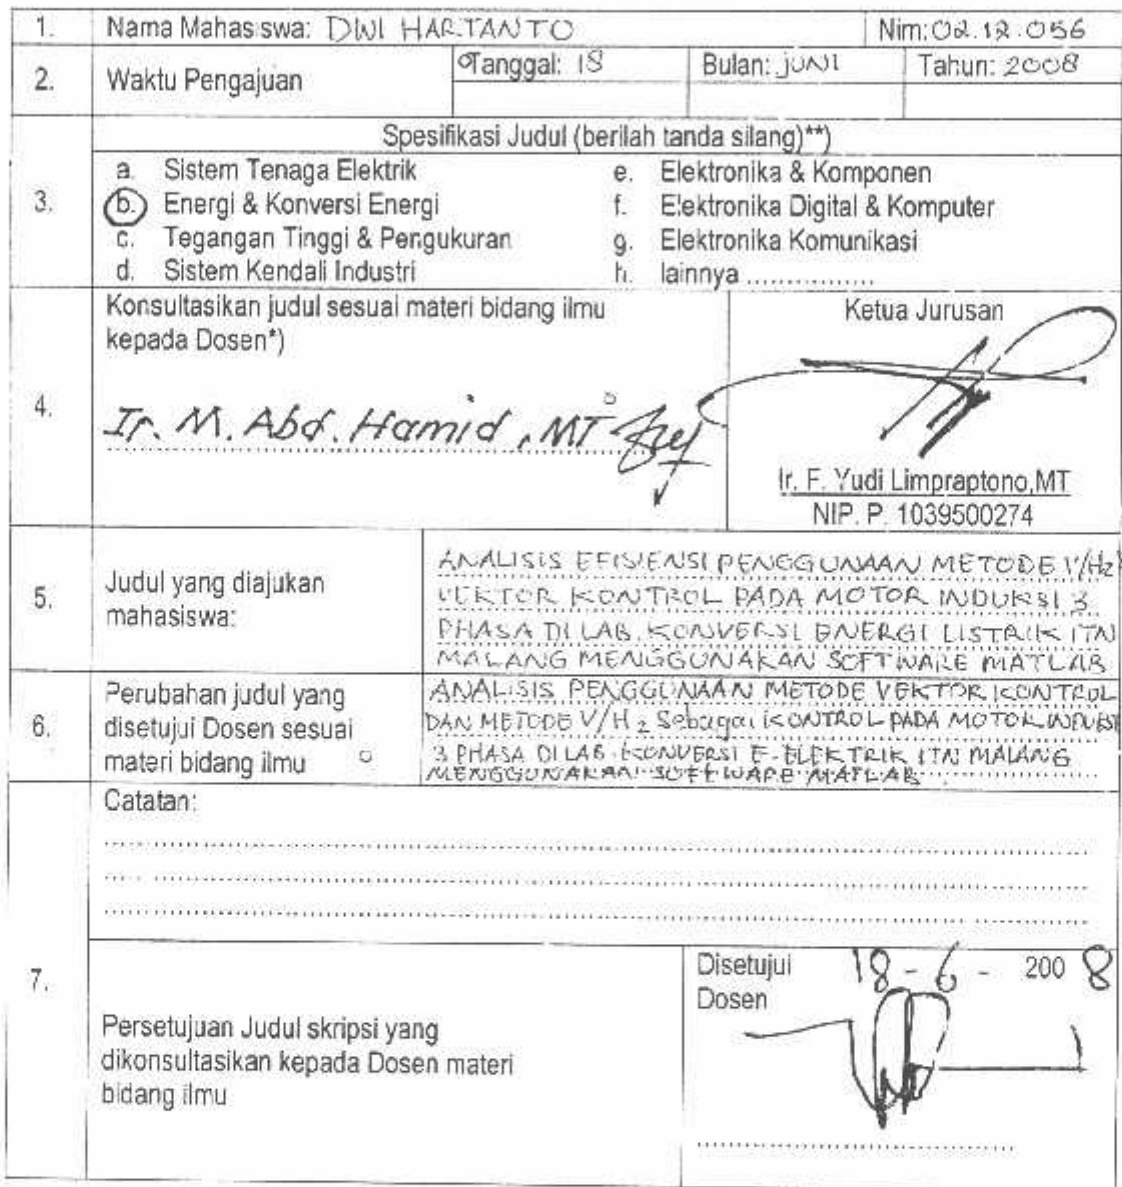 1. Nama Mahasiswa: DWI HARTANTO Nim: 02.12.056
2. Waktu Pengajuan Tanggal: 18 Bulan: JUNI Tahun: 2008
3. Spesifikasi Judul (berilah tanda silang)**)
a. Sistem Tenaga Elektrik
b. Energi & Konversi Energi
c. Tegangan Tinggi & Pengukuran
d. Sistem Kendali Industri
e. Elektronika & Komponen
f. Elektronika Digital & Komputer
g. Elektronika Komunikasi
h. lainnya ................
4. Konsultasikan judul sesuai materi bidang ilmu
kepada Dosen*)
Ir. M. Abd. Hamid, MT
Ketua Jurusan
Ir. F. Yudi Limpraptono,MT
NIP. P. 1039500274
5. Judul yang diajukan
mahasiswa:
ANALISIS EFISIENSI PENGGUNAAN METODE V/Hz
VEKTOR KONTROL PADA MOTOR INDUKSI 3
PHASA DI LAB. KONVERSI ENERGI LISTRIK ITN
MALANG MENGGUNAKAN SOFTWARE MATLAB
6. Perubahan judul yang
disetujui Dosen sesuai
materi bidang ilmu
ANALISIS PENGGUNAAN METODE VEKTOR KONTROL
DAN METODE V/Hz Sebagai KONTROL PADA MOTOR INDUKSI
3 PHASA DI LAB. KONVERSI E. ELEKTRIK ITN MALANG
MENGGUNAKAN SOFTWARE MATLAB
7. Catatan:
Persetujuan Judul skripsi yang
dikonsultasikan kepada Dosen materi
bidang ilmu
Disetujui 18 - 6 - 2008
Dosen